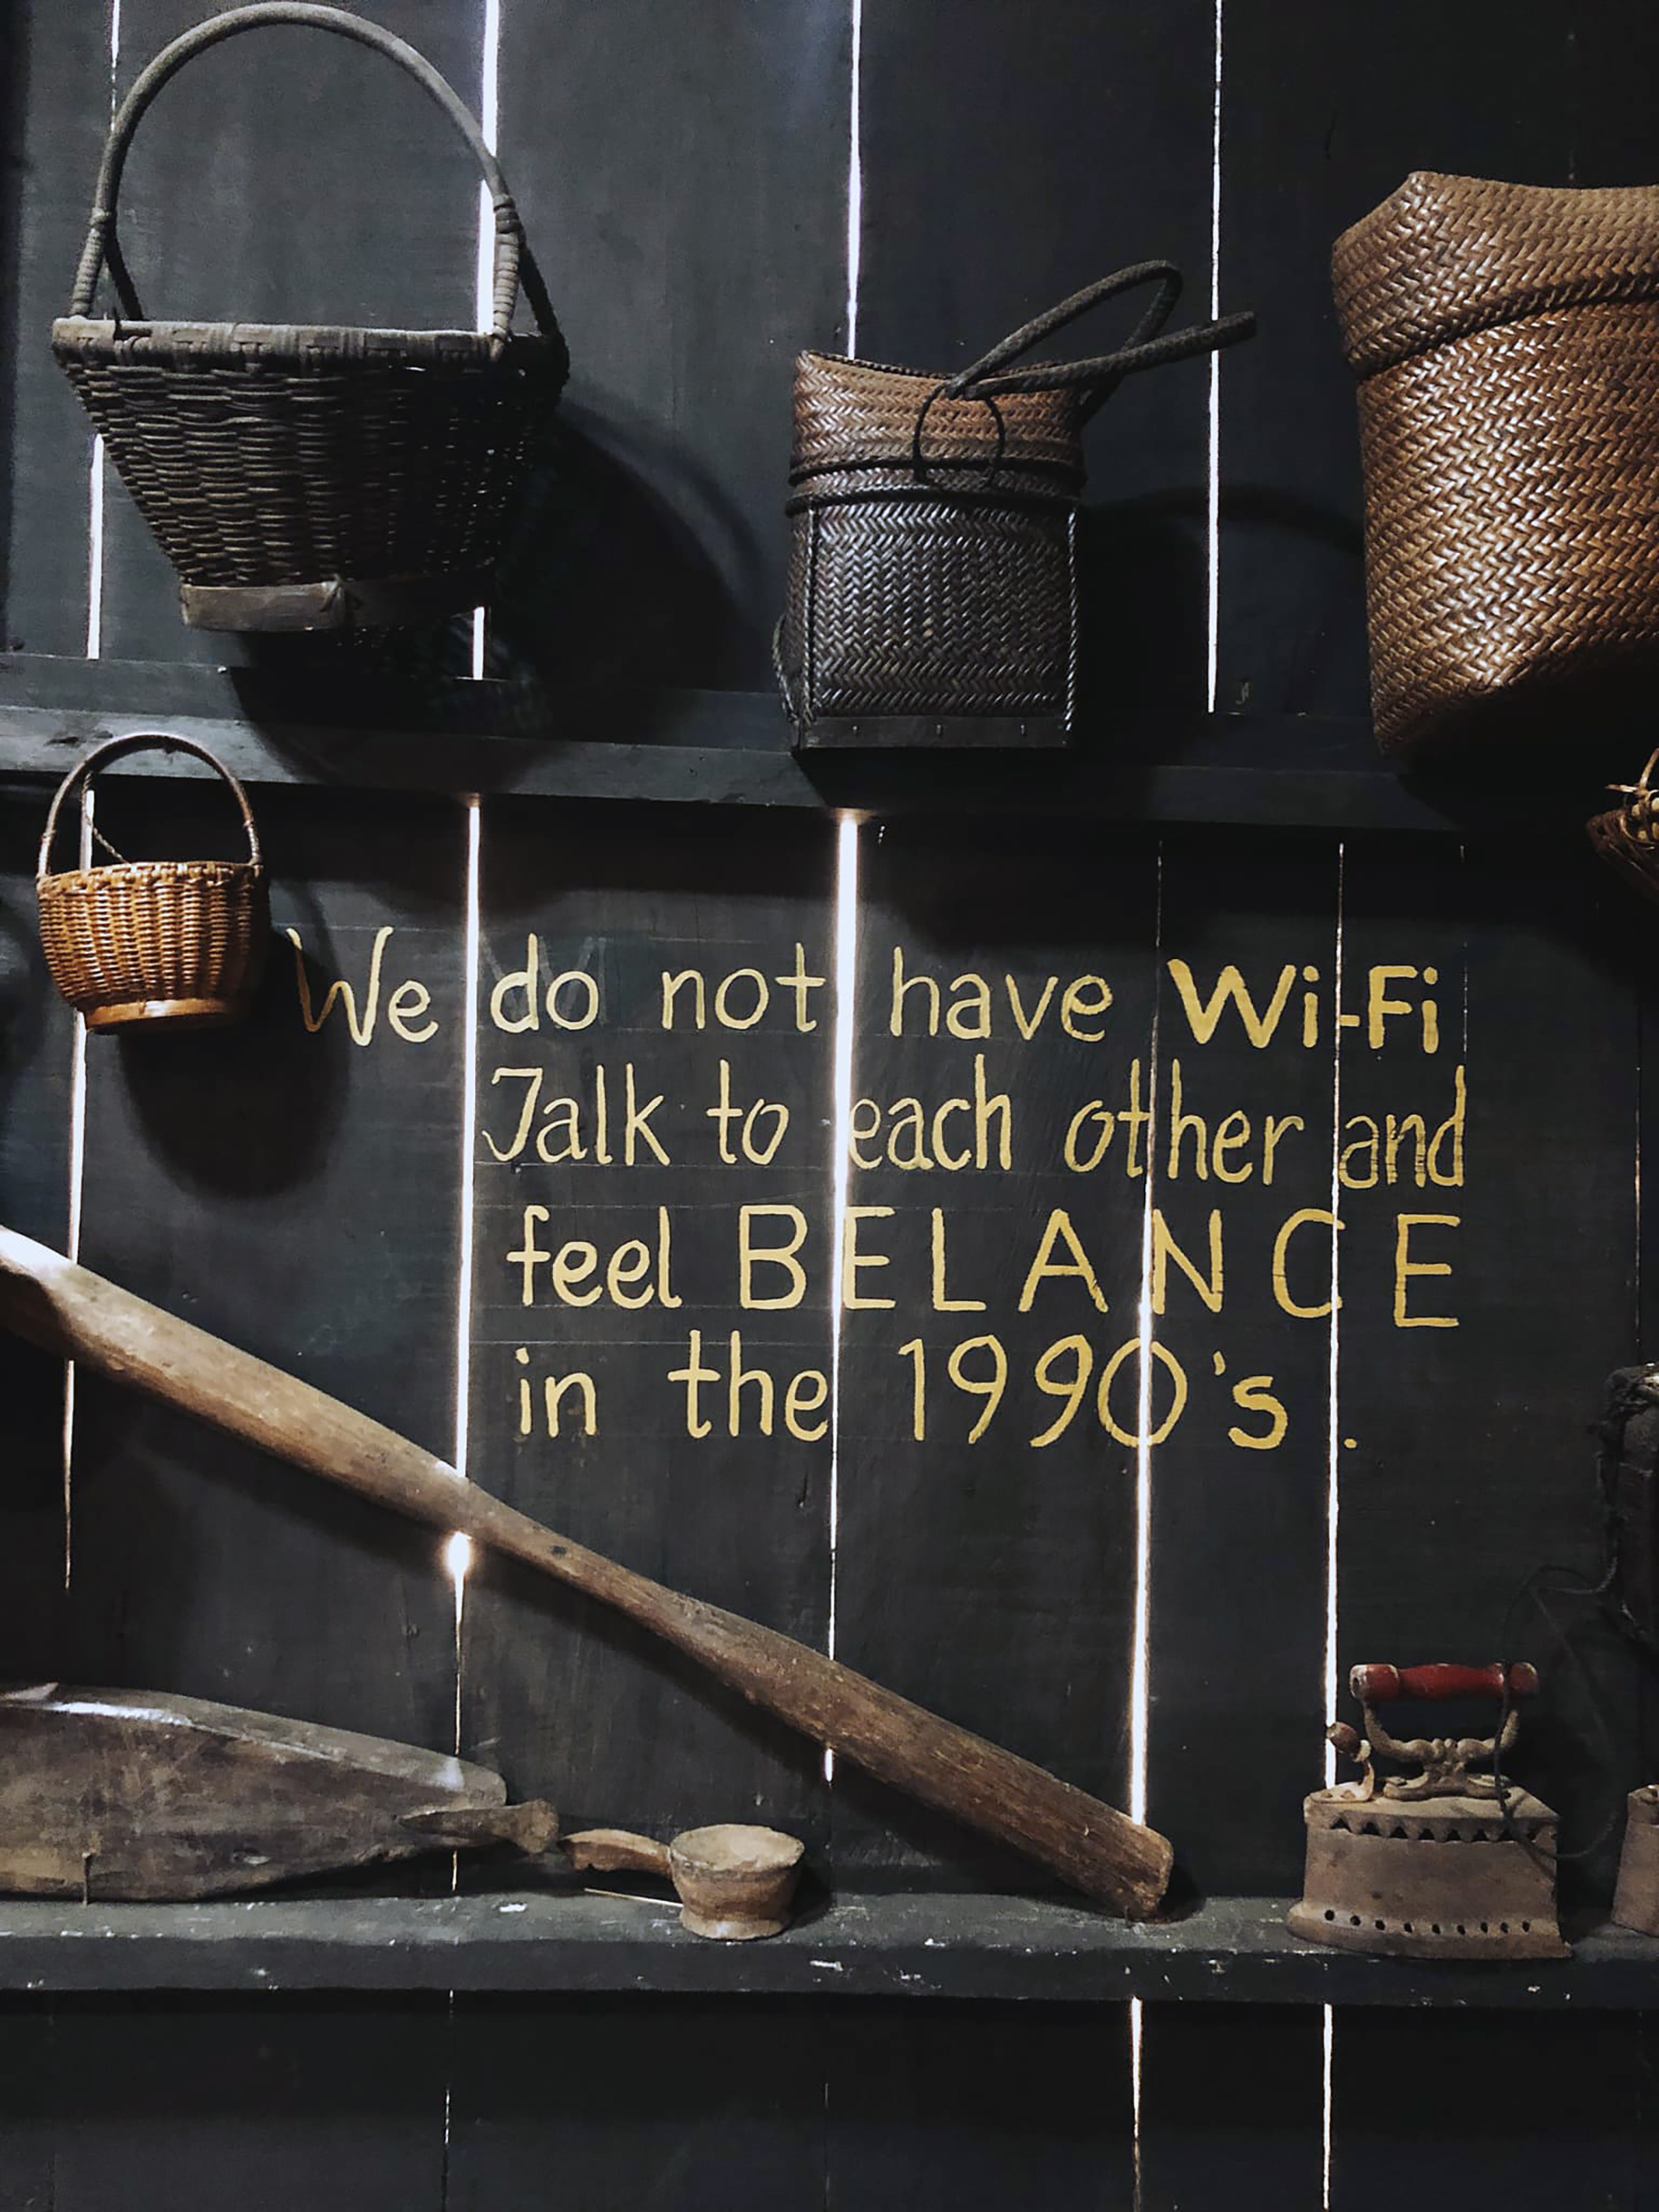 We do not have Wi-Fi
Talk to each other and
feel BELANCE
in the 1990's.